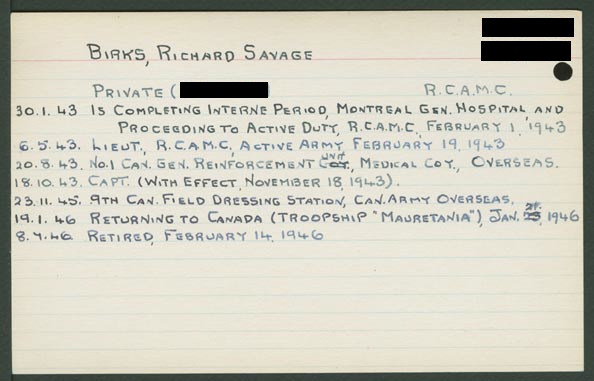 BIRKS, RICHARD SAVAGE
PRIVATE ( R.C.A.M.C.
30.1.43 IS COMPLETING INTERNE PERIOD, MONTREAL GEN. HOSPITAL, AND
PROCEEDING TO ACTIVE DUTY, R.C.A.M.C., FEBRUARY 1, 1943
6.5.43. LIEUT., R.C.A.M.C., ACTIVE ARMY, FEBRUARY 19, 1943
20.8.43. NO.1 CAN. GEN. REINFORCEMENT UNIT COY., MEDICAL COY., OVERSEAS.
18.10.43. CAPT. (WITH EFFECT, NOVEMBER 18, 1943).
23.11.45. 9TH CAN. FIELD DRESSING STATION, CAN. ARMY OVERSEAS.
19.1.46 RETURNING TO CANADA (TROOPSHIP "MAURETANIA"), JAN. 1946
8.7.46 RETIRED, FEBRUARY 14, 1946